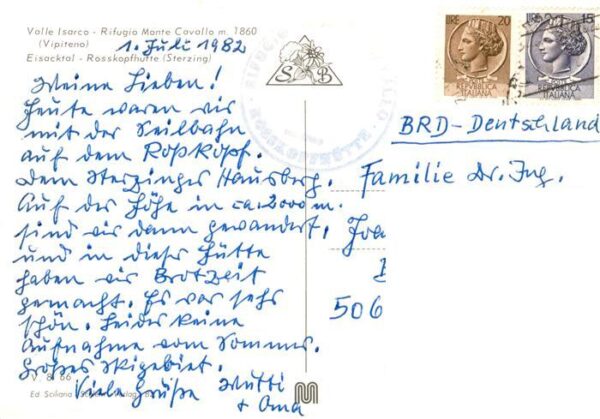 Valle Isarco - Rifugio Monte Cavallo m. 1860
(Vipiteno)
Eisacktal - Rosskopfhütte (Sterzing)
1. Juli 1982
Meine Lieben!
Heute waren wir
mit der Seilbahn
auf dem Roßkopf.
Dem Sterzinger Hausberg.
Auf der Höhe in ca. 2000 m.
sind wir dann gewandert,
und in dieser Hütte
haben wir Brotzeit
gemacht. Es war sehr
schön. Leider keine
Aufnahme vom Sommer.
Großes Skigebiet.
Viele Grüße Mutti
+ Oma
V. 8 66
Ed. Sciliana
S B
ROSSKOPFHÜTTE
LIRE 20
REPVBBLICA
ITALIANA
LIRE 15
REPVBBLICA
ITALIANA
BRD-Deutschland
Familie Dr. Ing.
506